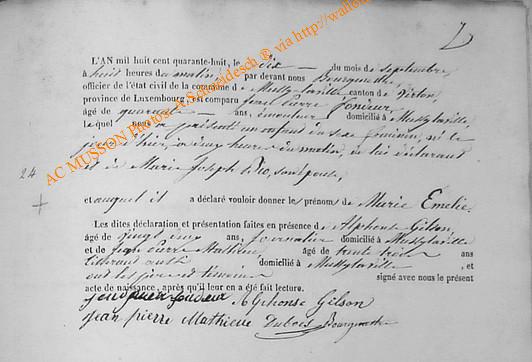 7
L'AN mil huit cent quarante-huit, le dix du mois de septembre
à huit heures du matin par devant nous Bourguette
officier de l'état civil de la commune de Mussy-la-ville canton de Virton
province de Luxembourg, est comparu Jean Pierre
âgé de quarante ans, domicilié à Mussy-la-ville
lequel nous a présenté un enfant du sexe féminin, né le
jour d'hier, à onze heures du matin, de lui déclarant
24 et de Marie Joseph son épouse,
et auquel il a déclaré vouloir donner les prénoms de Marie Emelie
Les dites déclaration et présentation faites en présence de Alphonse Gilson,
âgé de vingt cinq ans, journalier domicilié à Mussy-la-ville
et de Jean Pierre Mathieu, âgé de trente trois ans
domicilié à Mussy-la-ville, et
ont les père et témoins signé avec nous le présent
acte de naissance, après qu'il leur en a été fait lecture.
Alphonse Gilson
Jean pierre Mathieu Dubois Bourguette
AC MUSSON Photos A.Schmidesch ® via http://wallon